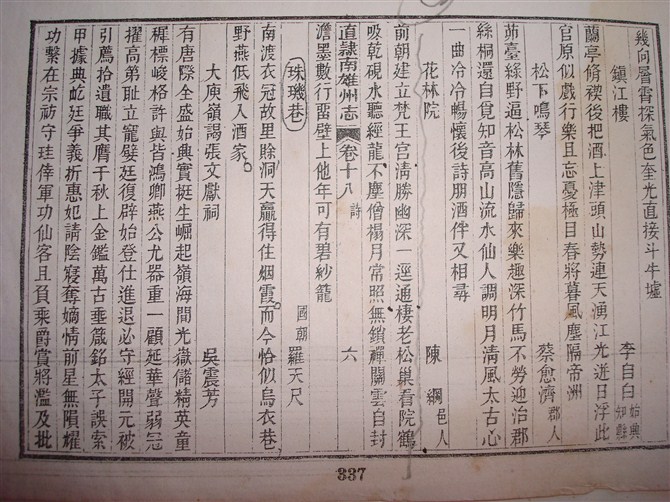 幾向層霄探氣色奎光直接斗牛墟
鎮江樓
李自白 始興知縣
蘭亭脩禊後把酒上津頭山勢連天湧江光逬日浮此
官原似戲行樂且忘憂極目春將暮風塵隔帝洲
松下鳴琴
蔡愈濟 郡人
茆臺綠野逼松林舊隱歸來樂趣深竹馬不勞迎治郡
絲桐還自覓知音高山流水仙人調明月清風太古心
一曲泠泠暢懷後詩朋酒伴又相尋
花林院
陳綱 邑人
前朝建立梵王宮清勝幽深一逕通棲老松巢看院鶴
吸乾硯水聽經龍不塵僧榻月常照無鎖禪關雲自封
直隷南雄州志 卷十八 詩 六
澹墨數行留壁上他年可有碧紗籠
珠璣巷
國朝 羅天尺
南渡衣冠故里賒洞天贏得住烟霞而今恰似烏衣巷
野燕低飛入酒家
大庾嶺謁張文獻祠
吳震芳
有唐際全盛始興實挺生崛起嶺海間光嶽儲精英童
穉標峻格許與皆鴻卿燕公尤器重一顧延華聲弱冠
擢高第恥立寵嬖廷復辟始登仕進退必守經開元被
引薦拾遺職其膺千秋上金鑑萬古垂箴銘太子誤索
甲據典屹廷爭義折惠妃請陰寢奪嫡情前星無隕耀
功繫在宗祊守珪倖軍功仙客且負乘爵賞將濫及批
337